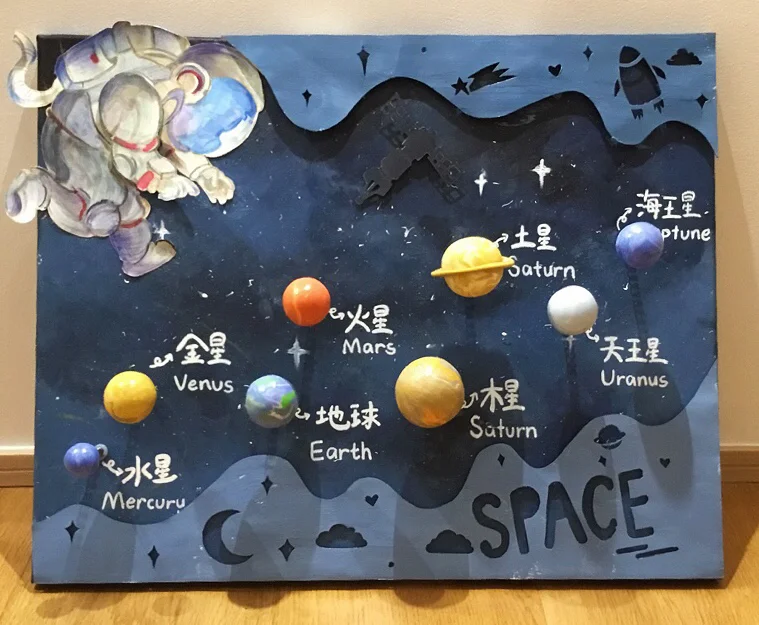 海王星
土星
Saturn
火星
Mars
天王星
Uranus
金星
Venus
木星
Saturn
地球
Earth
水星
Mercury
SPACE